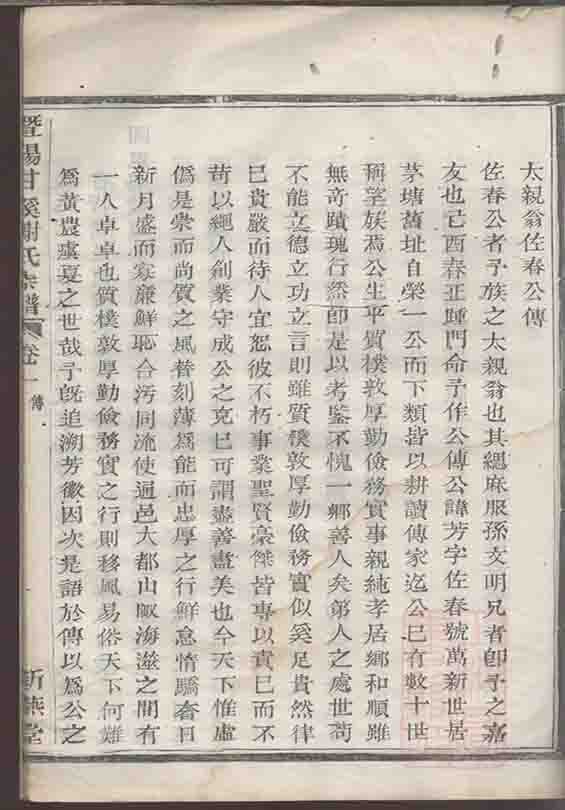 太親翁佐春公傳
佐春公者予族之太親翁也其緦麻服孫文明兄者卽予之嘉
友也己酉春正踵門命予作公傳公諱芳字佐春號萬新世居
茅塘舊址自榮一公而下類皆以耕讀傳家迄公已有數十世
稱望族焉公生平質樸敦厚勤儉務實事親純孝居鄉和順雖
無奇蹟瑰行然卽是以考鑒不愧一鄉善人矣第人之處世苟
不能立德立功立言則雖質樸敦厚勤儉務實似奚足貴然律
己貴嚴而待人宜恕彼不朽事業聖賢豪傑皆專以責己而不
苛以繩人創業守成公之克已可謂盡善盡美也今天下惟虛
僞是崇而尚質之風替刻薄爲能而忠厚之行鮮怠惰驕奢日
新月盛而寡廉鮮恥合汚同流使遍邑大都山陬海澨之間有
一人卓卓也質樸敦厚勤儉務實之行則移風易俗天下何難
爲黃農虞夏之世哉予旣追溯芳徽因次是語於傳以爲公之
暨陽甘溪謝氏宗譜 卷一 傳